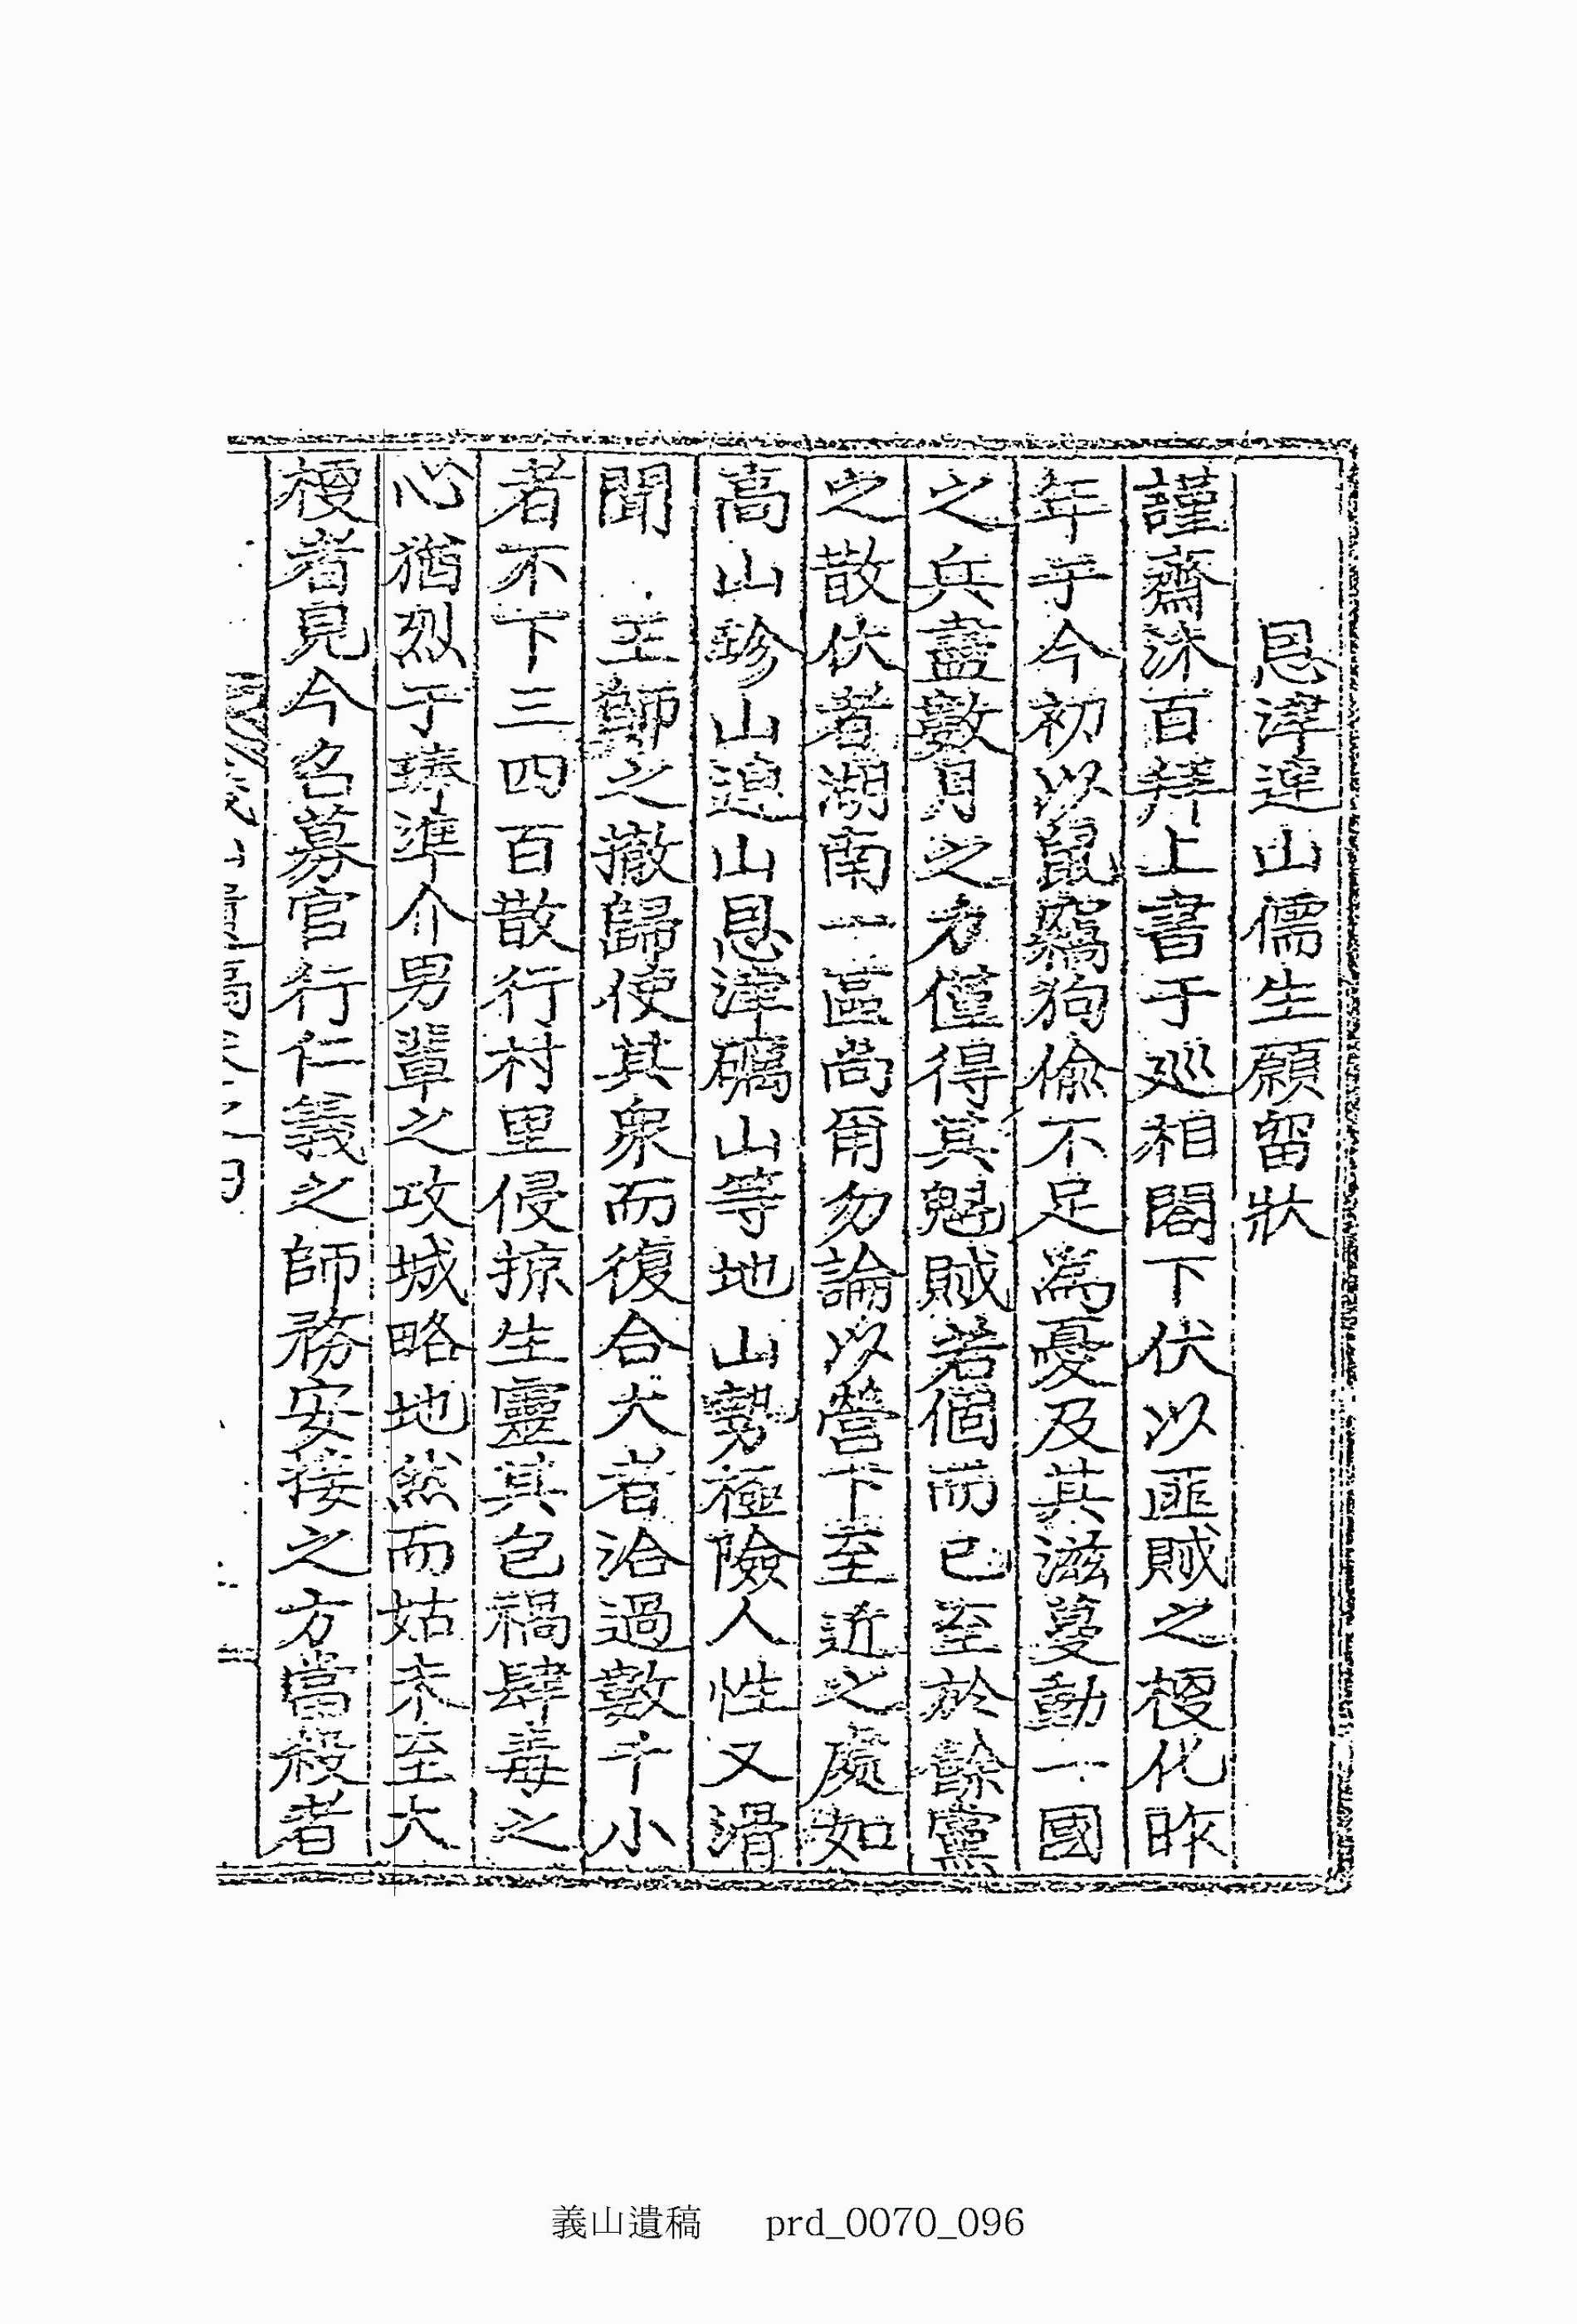 恩津連山儒生願留狀
謹齋沐百拜上書于巡相閤下伏以匪賊之梗化昨
年乎今初以鼠竊狗偸不足爲憂及其滋蔓動一國
之兵盡數月之力僅得其魁賊若個而已至於餘黨
之散伏者湖南一區尚甭勿論以營下至近之處如
高山珍山連山恩津礪山等地山勢極險人性又滑
聞王師之撤歸使其衆而復合大者洽過數千小
者不下三四百散行村里侵掠生靈其包禍肆毒之
心猶烈于琫準介男輩之攻城略地然而姑未至大
梗者見今名募官行仁義之師務安接之方當殺者
義山遺稿 prd_0070_096